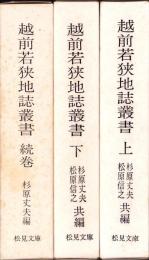 越前若狭地誌叢書 上
杉原丈夫
松原信之 共編
松見文庫
越前若狭地誌叢書 下
杉原丈夫
松原信之 共編
松見文庫
越前若狭地誌叢書 続巻
杉原丈夫編
松見文庫